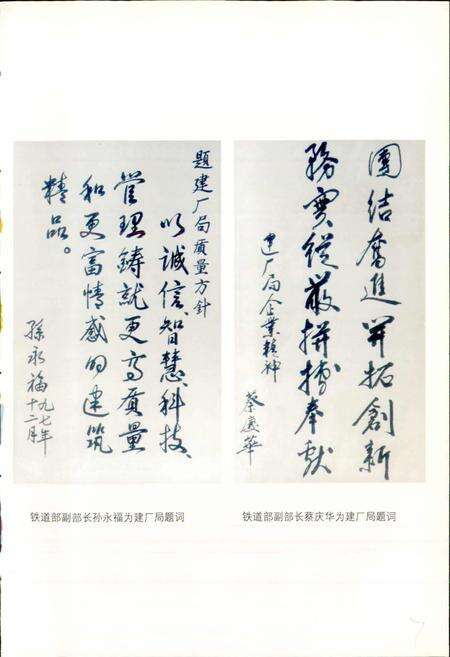 题建厂局质量方针
以诚信、智慧、科技、
管理铸就更高质量
和更富情感的建筑
精品。
孙永福
九七年
十二月
铁道部副部长孙永福为建厂局题词
團结奮進開拓創新
務實從嚴拼搏奉献
建厂局企業精神
蔡慶華
铁道部副部长蔡庆华为建厂局题词